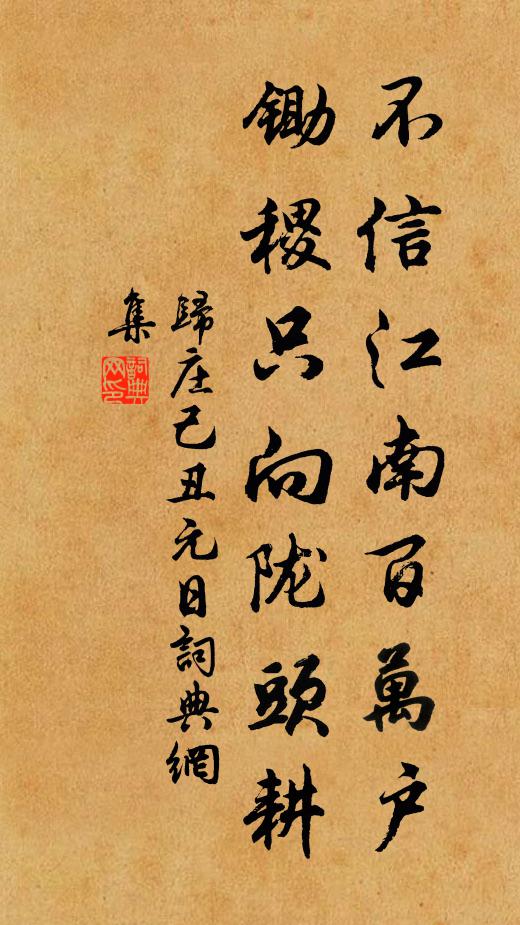 不信江南百萬戶
鋤耰只向陇頭耕
歸庄己丑元日詞典網
集
詞典
网印